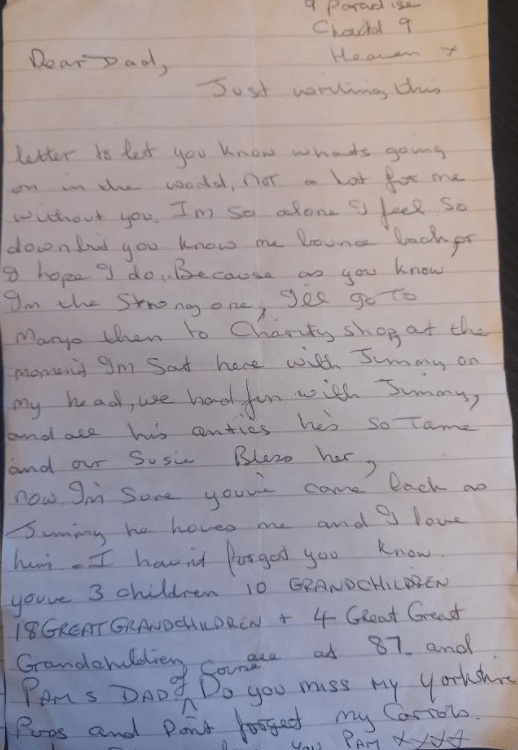 9 Paradise
Cloud 9
Heaven x
Dear Dad,
Just writing this
letter to let you know whats going
on in the world, not a lot for me
without you. I'm so alone I feel so
down but you know me bounce back or
I hope I do.. Because as you know
I'm the strong one, I'll go to
Marys then to Charity shop, at the
moment I'm Sat here with Jimmy on
my head, we had fun with Jimmy,
and all his antics he's so Tame
and our Susie Bless her,
now I'm Sure you've come back as
Jimmy he loves me and I love
him. I havn't forgot you know.
youve 3 children 10 GRANDCHILDREN
18 GREAT GRANDCHILDREN + 4 Great Great
Grandchildren all at 87. and
PAM'S DAD of course Do you miss my Yorkshire
Puds and Don't forget my Carrots.
you PAM xxxx